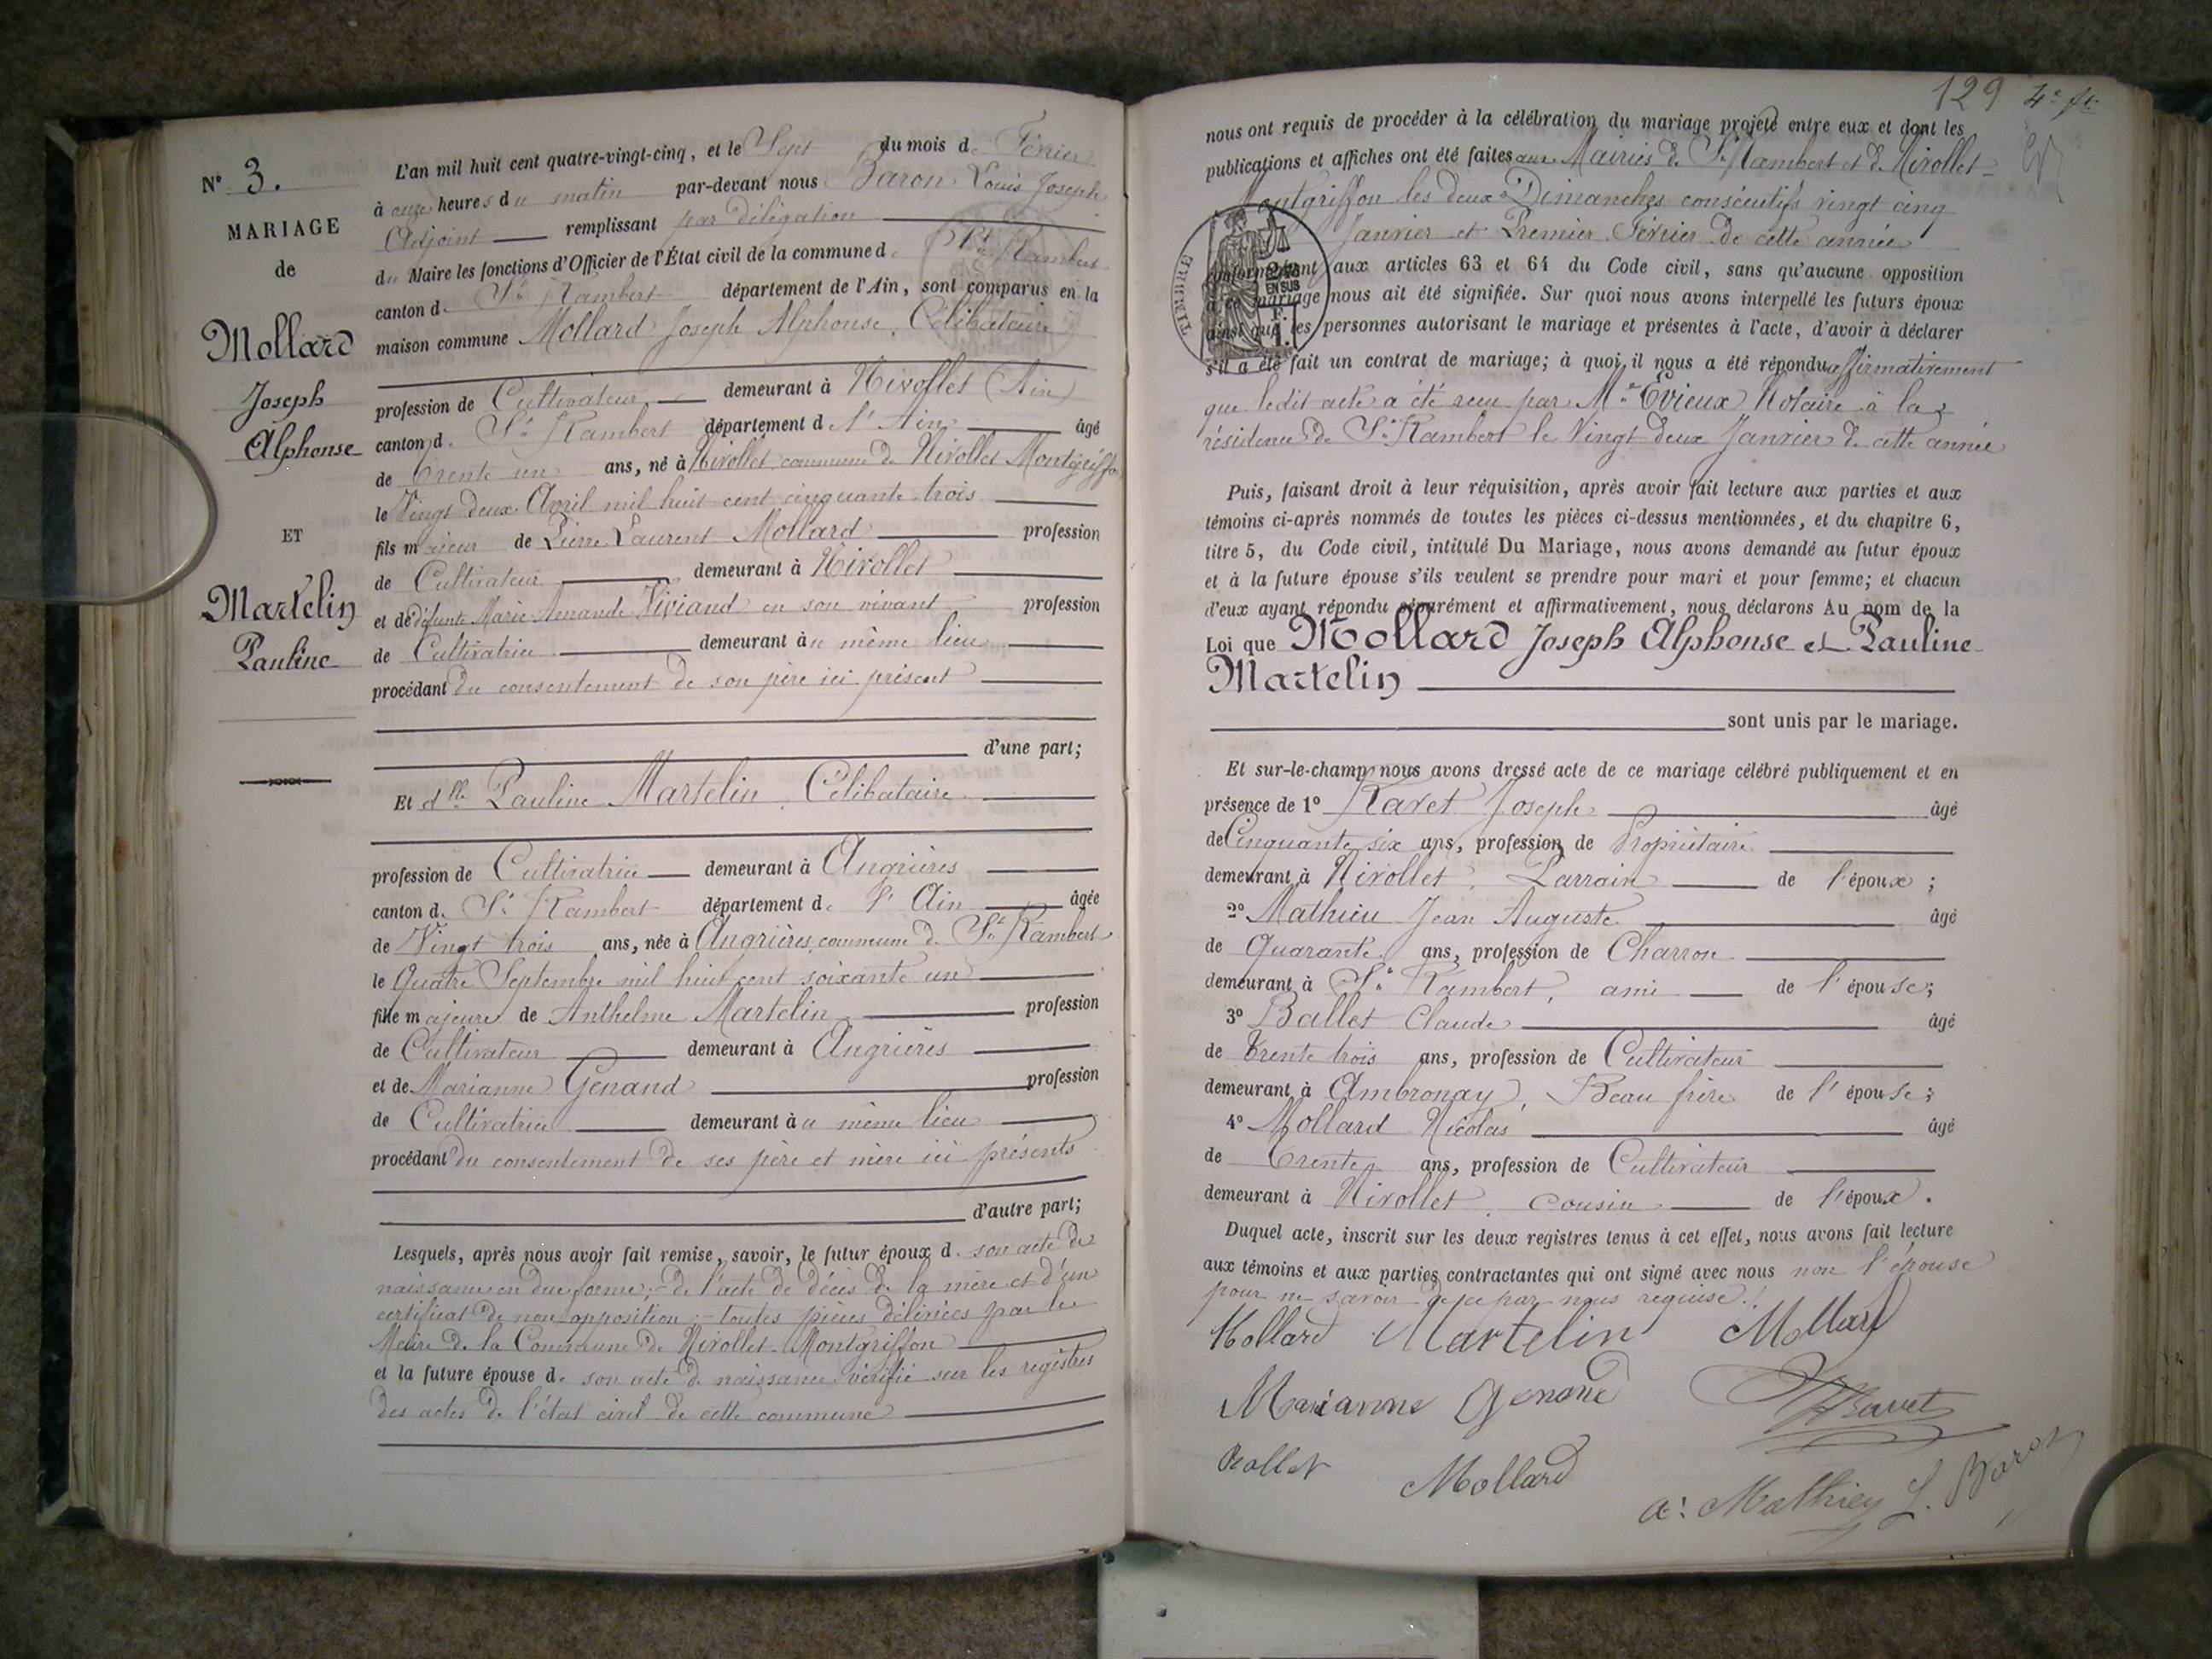 N° 3.
MARIAGE
de
Mollard
Joseph
Alphonse
ET
Martelin
Pauline
L'an mil huit cent quatre-vingt-cinq, et le Sept du mois de Février
à onze heures du matin par-devant nous Baron Louis Joseph
Adjoint remplissant par délégation
du Maire les fonctions d'Officier de l'État civil de la commune de St Rambert
canton de St Rambert département de l'Ain, sont comparus en la
maison commune Mollard Joseph Alphonse, Célibataire
profession de Cultivateur demeurant à Nivollet (Ain)
canton de St Rambert département de l'Ain âgé
de trente un ans, né à Nivollet, commune de Nivollet Montgriffon
le Vingt deux Avril mil huit cent cinquante trois
fils majeur de Pierre Laurent Mollard profession
de Cultivateur demeurant à Nivollet
et de défunte Marie Amande Viviand en son vivant profession
de Cultivatrice demeurant au même lieu
procédant du consentement de son père ici présent
d'une part;
Et dlle Pauline Martelin, Célibataire
profession de Cultivatrice demeurant à Angrières
canton de St Rambert département de l'Ain âgée
de Vingt trois ans, née à Angrières, commune de St Rambert
le Quatre Septembre mil huit cent soixante un
fille majeure de Anthelme Martelin profession
de Cultivateur demeurant à Angrières
et de Marianne Genand profession
de Cultivatrice demeurant au même lieu
procédant du consentement de ses père et mère ici présents
d'autre part;
Lesquels, après nous avoir fait remise, savoir, le futur époux de son acte de
naissance en due forme; de l'acte de décès de la mère et d'un
certificat de non opposition; toutes pièces délivrées par le
Maire de la Commune de Nivollet-Montgriffon
et la future épouse de son acte de naissance vérifié sur les registres
des actes de l'état civil de cette commune
129 4e ft
nous ont requis de procéder à la célébration du mariage projeté entre eux et dont les
publications et affiches ont été faites aux Mairies de St Rambert et de Nivollet-
Montgriffon les deux Dimanches consécutifs vingt cinq
Janvier et Premier Février de cette année
conformément aux articles 63 et 64 du Code civil, sans qu'aucune opposition
à ce mariage nous ait été signifiée. Sur quoi nous avons interpellé les futurs époux
ainsi que les personnes autorisant le mariage et présentes à l'acte, d'avoir à déclarer
s'il a été fait un contrat de mariage; à quoi il nous a été répondu affirmativement
TIMBRE
2/10
EN SUS
F.
1.
que ledit acte a été reçu par Me Evieux Notaire à la
résidence de St Rambert le Vingt deux Janvier de cette année
Puis, faisant droit à leur réquisition, après avoir fait lecture aux parties et aux
témoins ci-après nommés de toutes les pièces ci-dessus mentionnées, et du chapitre 6,
titre 5, du Code civil, intitulé Du Mariage, nous avons demandé au futur époux
et à la future épouse s'ils veulent se prendre pour mari et pour femme; et chacun
d'eux ayant répondu séparément et affirmativement, nous déclarons Au nom de la
Loi que Mollard Joseph Alphonse et Pauline
Martelin
sont unis par le mariage.
Et sur-le-champ nous avons dressé acte de ce mariage célébré publiquement et en
présence de 1° Ravet Joseph âgé
de Cinquante six ans, profession de Propriétaire
demeurant à Nivollet, Parrain de l'époux;
2° Mathieu Jean Auguste âgé
de Quarante ans, profession de Charron
demeurant à St Rambert, ami de l'épouse;
3° Ballet Claude âgé
de trente trois ans, profession de Cultivateur
demeurant à Ambronay, Beau frère de l'épouse;
4° Mollard Nicolas âgé
de trente ans, profession de Cultivateur
demeurant à Nivollet, cousin de l'époux.
Duquel acte, inscrit sur les deux registres tenus à cet effet, nous avons fait lecture
aux témoins et aux parties contractantes qui ont signé avec nous non l'épouse
pour ne savoir de ce par nous requise.
Mollard Martelin Mollard
Marianne Genand Ravet
Ballet Mollard
a: Mathieu L. Baron